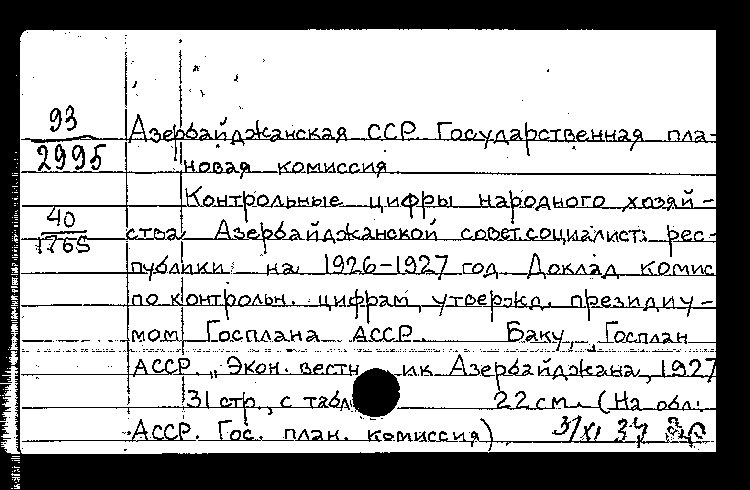 93
2995
Азербайджанская ССР. Государственная пла-
новая комиссия
Контрольные цифры народного хозяй-
40
1765
ства Азербайджанской совет.социалист. рес-
публики на 1926-1927 год. Доклад комис
по контрольн. цифрам, утвержд. президиу-
мом Госплана АССР. Баку, Госплан
АССР. „Экон. вестн ик Азербайджана, 1927
31 стр., с табл 22 см. (На обл.:
АССР. Гос. план. комиссия)
3/XI 34